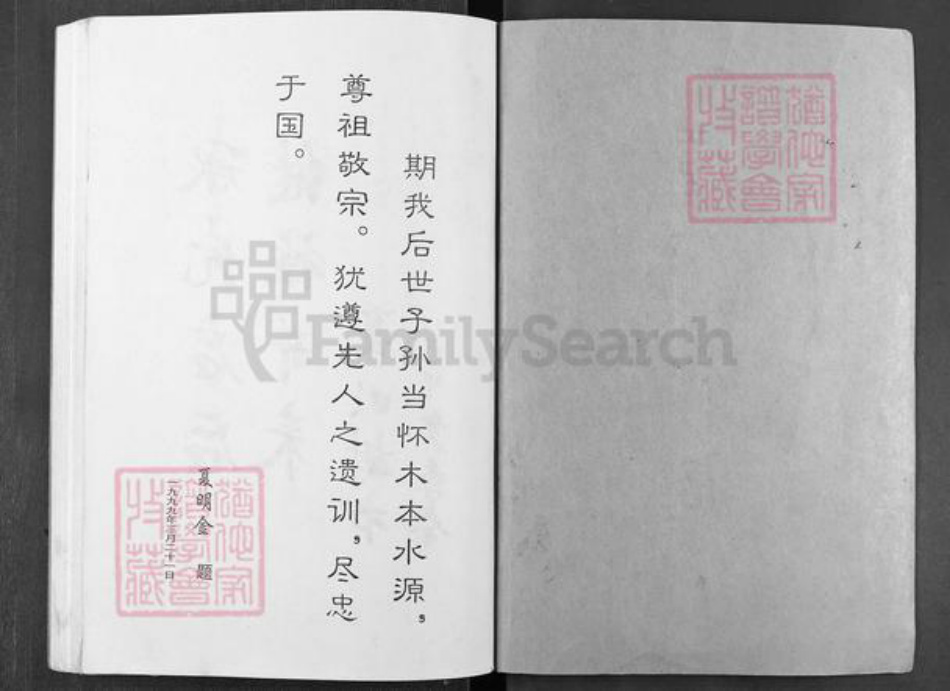 期我后世子孙当怀木本水源，
尊祖敬宗。犹遵先人之遗训，尽忠
于国。
夏明金 题
一九九九年三月二十一日
猶他家
譜學會
收藏
猶他家
譜學會
收藏
FamilySearch